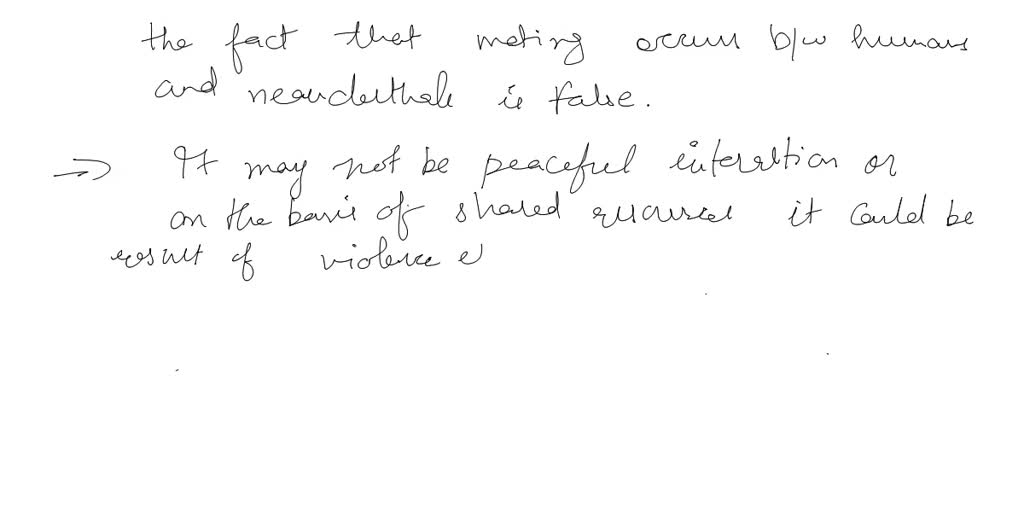 the fact that mating occurs b/w humans
and neanderthals is false.
→ It may not be peaceful interaction or
on the basis of shared resources it could be
result of violence e